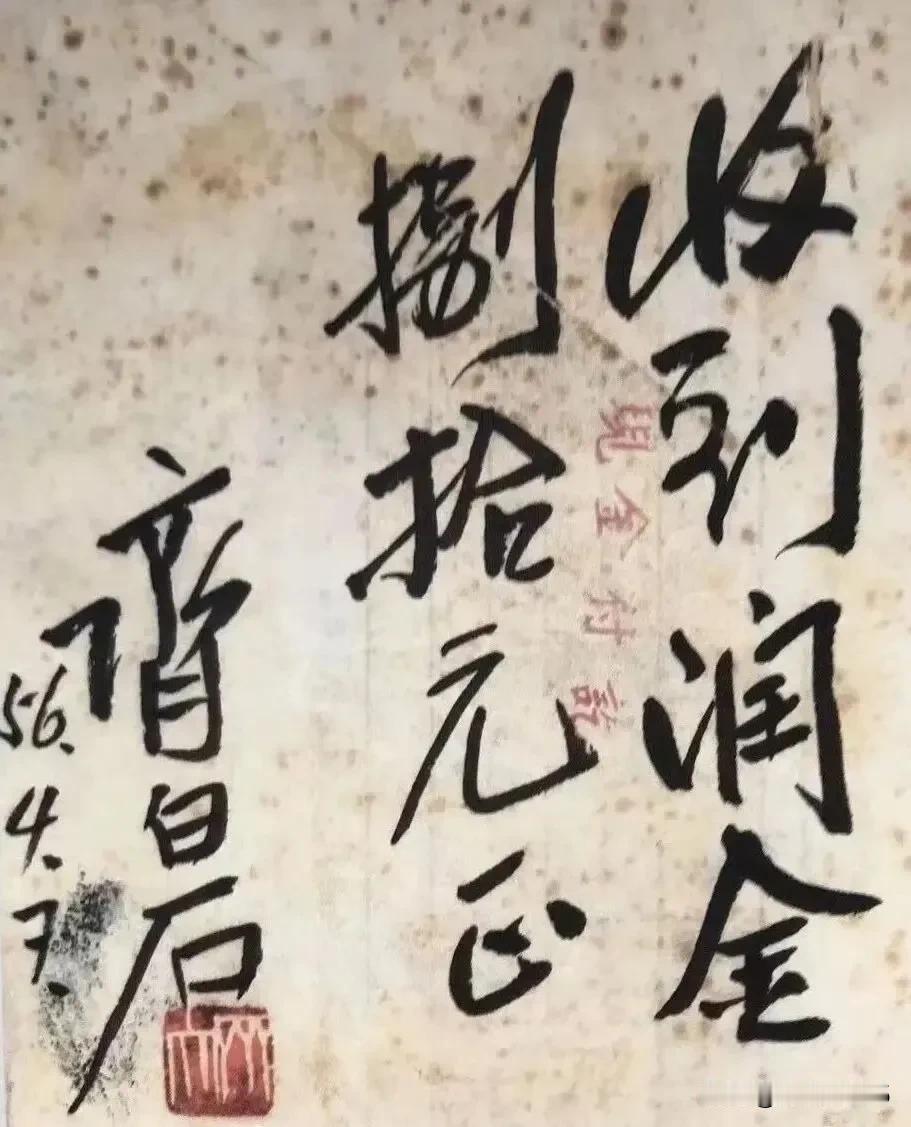 收到润金
现金付讫
捌拾元正
齊白石
56.4.7.